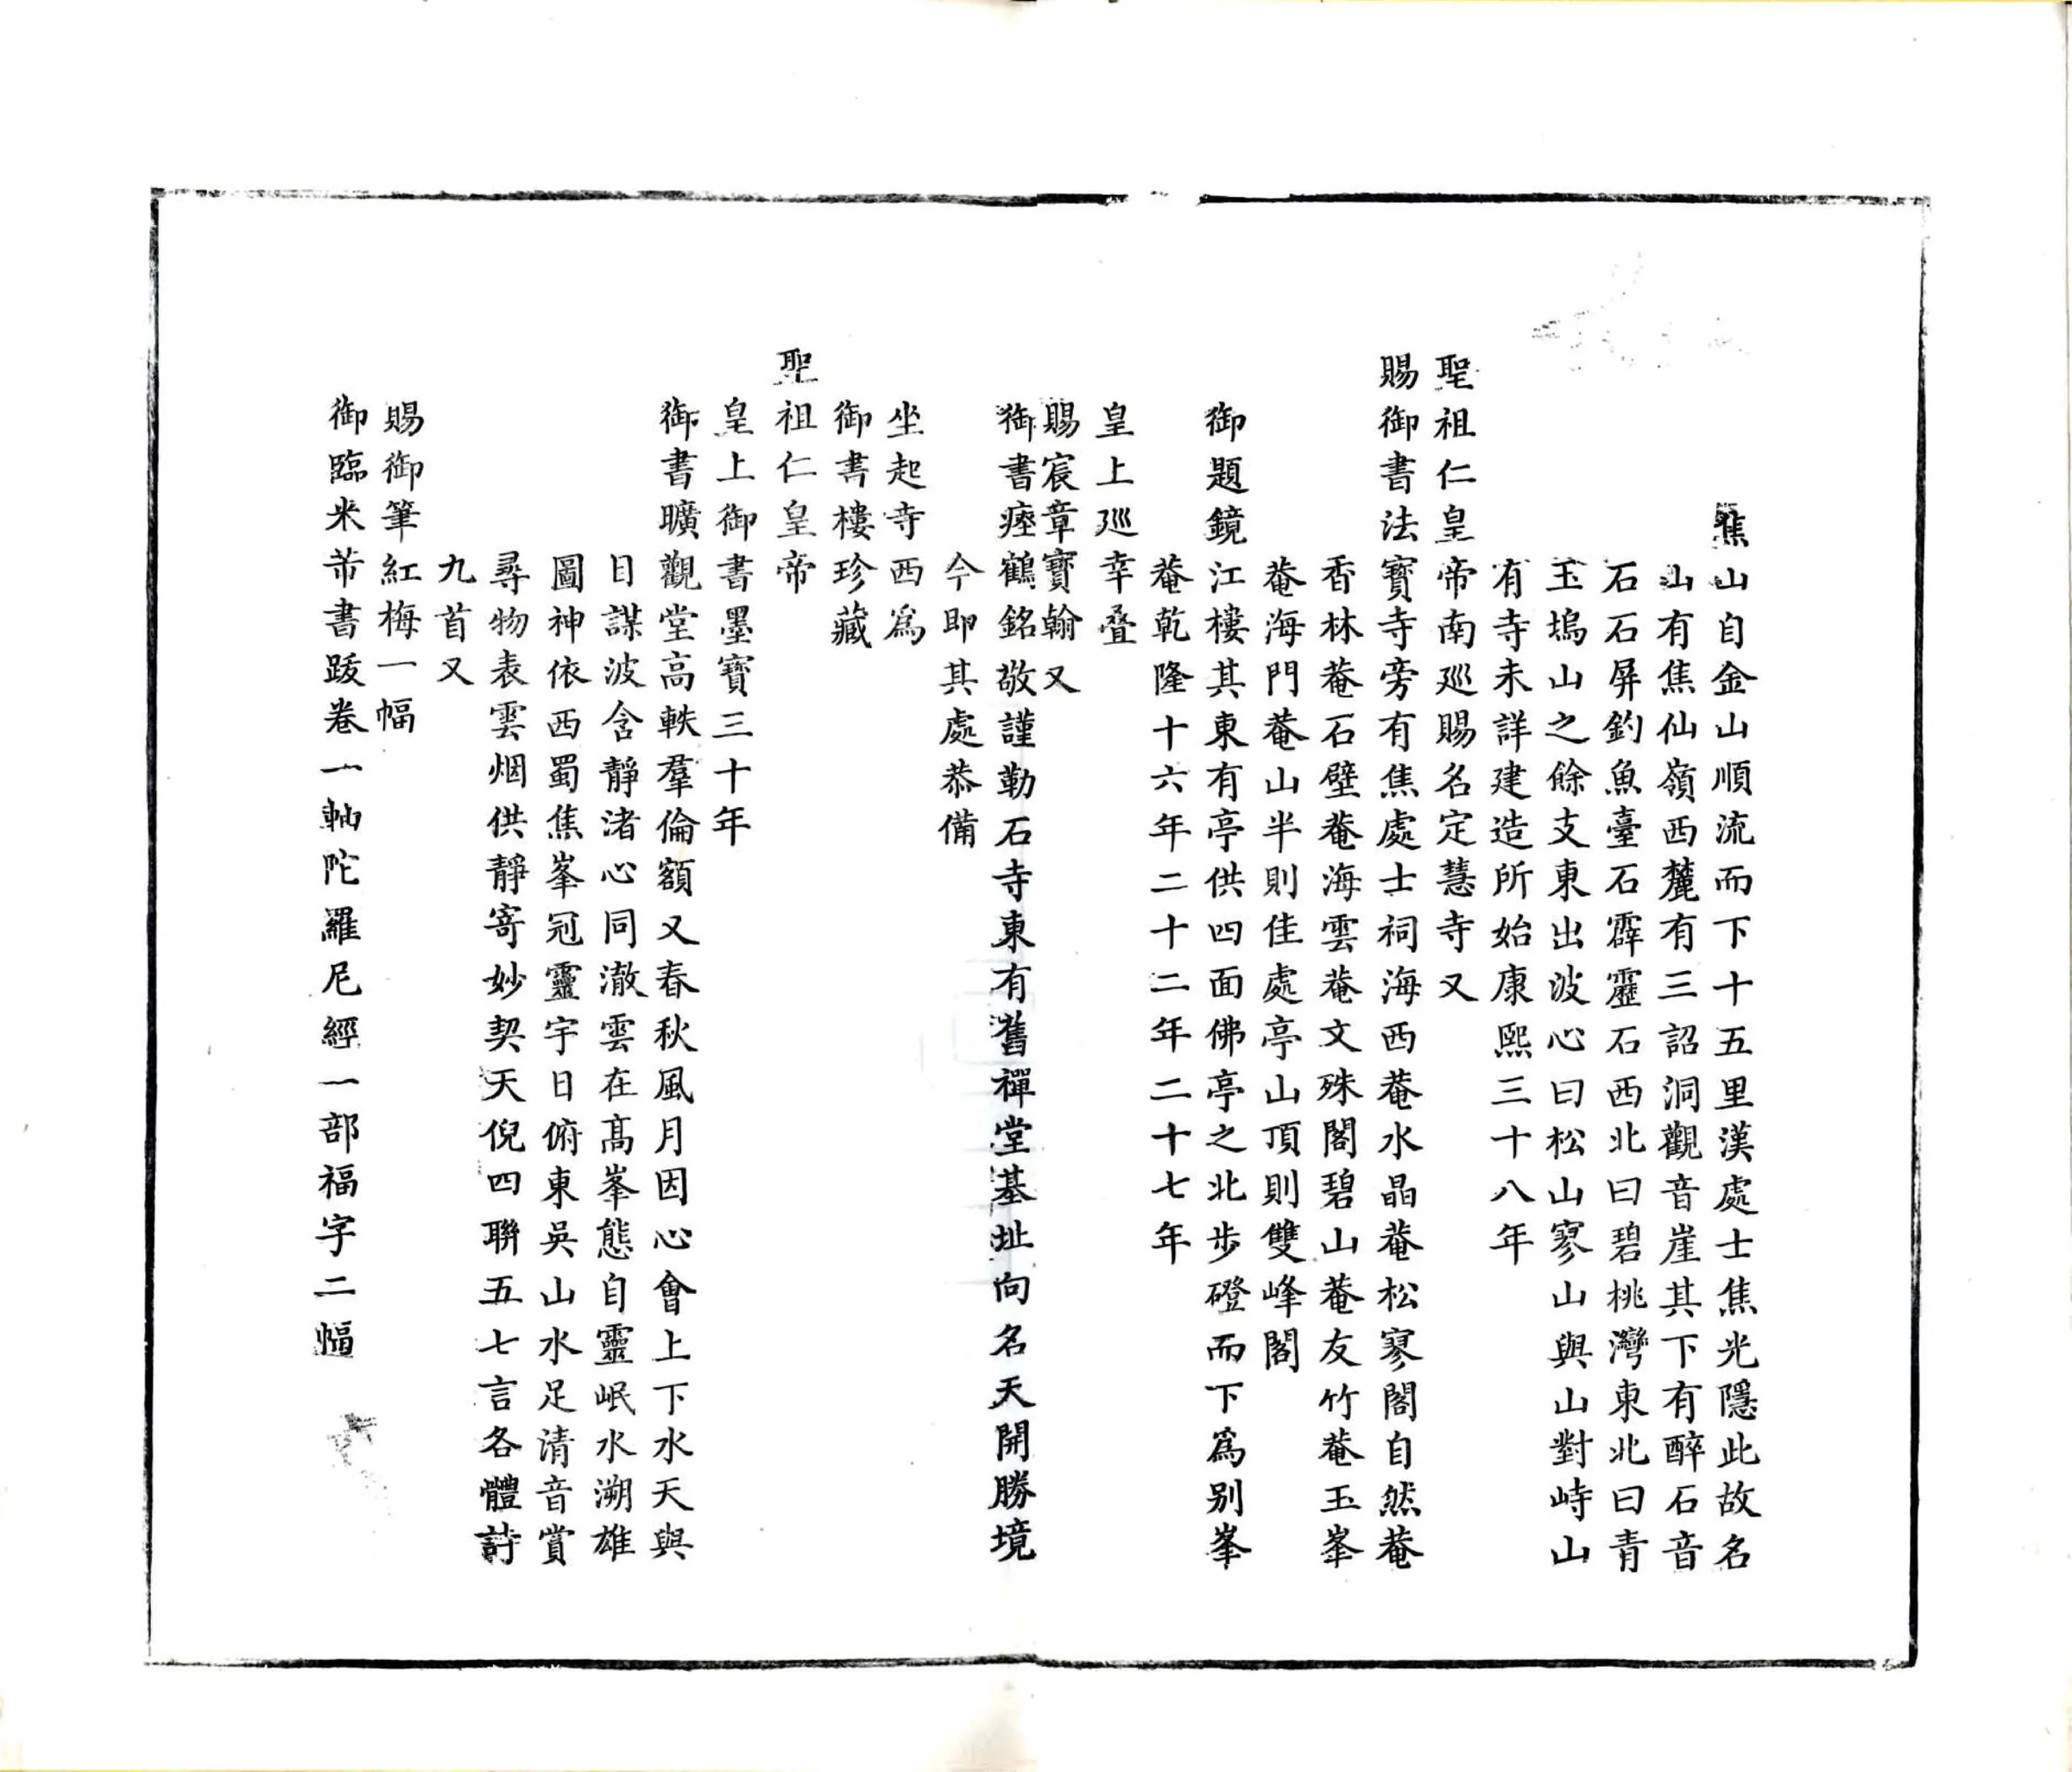 焦山自金山順流而下十五里漢處士焦光隱此故名
山有焦仙嶺西麓有三詔洞觀音崖其下有醉石音
石石屏釣魚臺石霹靂石西北曰碧桃灣東北曰青
玉塢山之餘支東出波心曰松山寥山與山對峙山
有寺未詳建造所始康熙三十八年
聖祖仁皇帝南廵賜名定慧寺又
賜御書法寶寺旁有焦處士祠海西菴水晶菴松寥閣自然菴
香林菴石壁菴海雲菴文殊閣碧山菴友竹菴玉峯
菴海門菴山半則佳處亭山頂則雙峰閣
御題鏡江樓其東有亭供四面佛亭之北步磴而下爲别峯
菴乾隆十六年二十二年二十七年
皇上廵幸疊
賜宸章寶翰又
御書瘞鶴銘敬謹勒石寺東有舊禪堂基址向名天開勝境
今即其處恭備
坐起寺西爲
御書樓珍藏
聖祖仁皇帝
皇上御書墨寶三十年
御書曠觀堂高軼羣倫額又春秋風月因心會上下水天與
目謀波含靜渚心同澈雲在高峯態自靈岷水溯雄
圖神依西蜀焦峯冠靈宇日俯東吳山水足清音賞
尋物表雲烟供靜寄妙契天倪四聯五七言各體詩
九首又
賜御筆紅梅一幅
御臨米芾書跋卷一軸陀羅尼經一部福字二幅